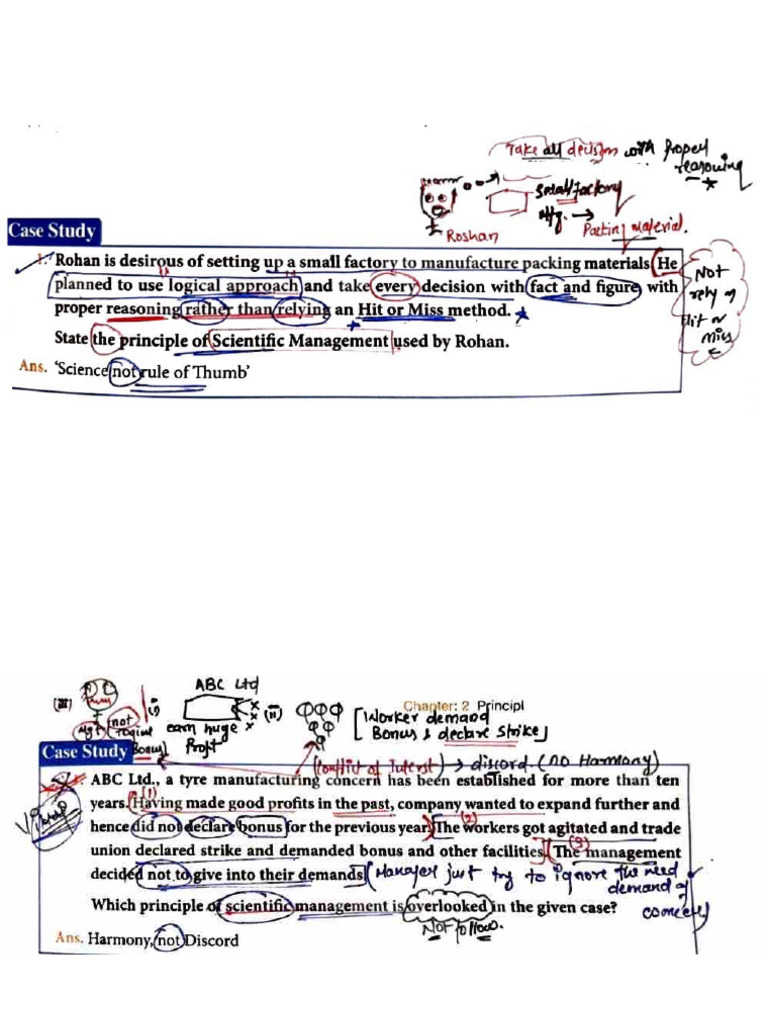 Take all decisions with Proper
reasoning
Small factory
Mfg. → Packing Material.
Roshan
Case Study
1. Rohan is desirous of setting up a small factory to manufacture packing materials. He
planned to use logical approach and take every decision with fact and figure, with
proper reasoning rather than relying an Hit or Miss method.
State the principle of Scientific Management used by Rohan.
Ans. 'Science not rule of Thumb'
Not
rely on
Hit or
miss
ABC Ltd
(iii)
(i)
(ii)
Mgt not
to give
Bonus
earn huge
Profit
Chapter: 2 Principl
[Worker demand
Bonus & declare Strike]
Case Study
(Conflict of Interst) → discord. (NO Harmony)
ABC Ltd., a tyre manufacturing concern has been established for more than ten
years. Having made good profits in the past, company wanted to expand further and
hence did not declare bonus for the previous year. The workers got agitated and trade
union declared strike and demanded bonus and other facilities. The management
decided not to give into their demands.
(1)
(2)
(3)
V.imp
(Manager just try to ignore the need
demand of
Which principle of scientific management is overlooked in the given case?
Not follow.
Ans. Harmony, not Discord